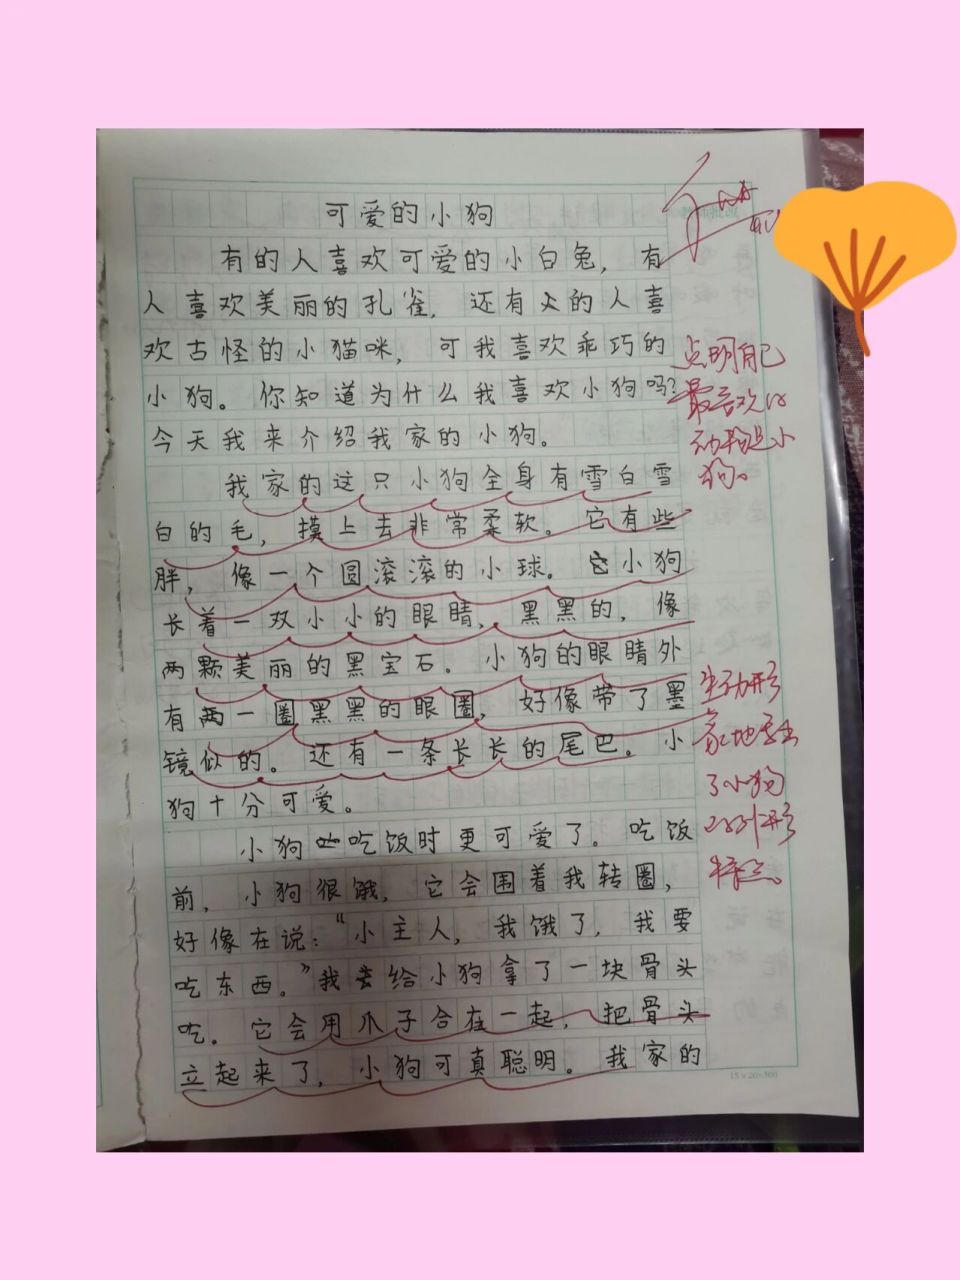 可爱的小狗
有的人喜欢可爱的小白兔，有
人喜欢美丽的孔雀，还有的人喜
欢古怪的小猫咪，可我喜欢乖巧的
小狗。你知道为什么我喜欢小狗吗？
今天我来介绍我家的小狗。
我家的这只小狗全身有雪白雪
白的毛，摸上去非常柔软。它有些
胖，像一个圆滚滚的小球。小狗
长着一双小小的眼睛，黑黑的，像
两颗美丽的黑宝石。小狗的眼睛外
有一圈黑黑的眼圈，好像带了墨
镜似的。还有一条长长的尾巴。小
狗十分可爱。
小狗吃饭时更可爱了。吃饭
前，小狗很饿，它会围着我转圈，
好像在说：“小主人，我饿了，我要
吃东西。”我给小狗拿了一块骨头
吃。它会用爪子合在一起，把骨头
立起来了，小狗可真聪明。我家的
点明自己
最喜欢的
动物是小
狗。
生动形
象地写出
了小狗
的外形
特点。
15×20=300